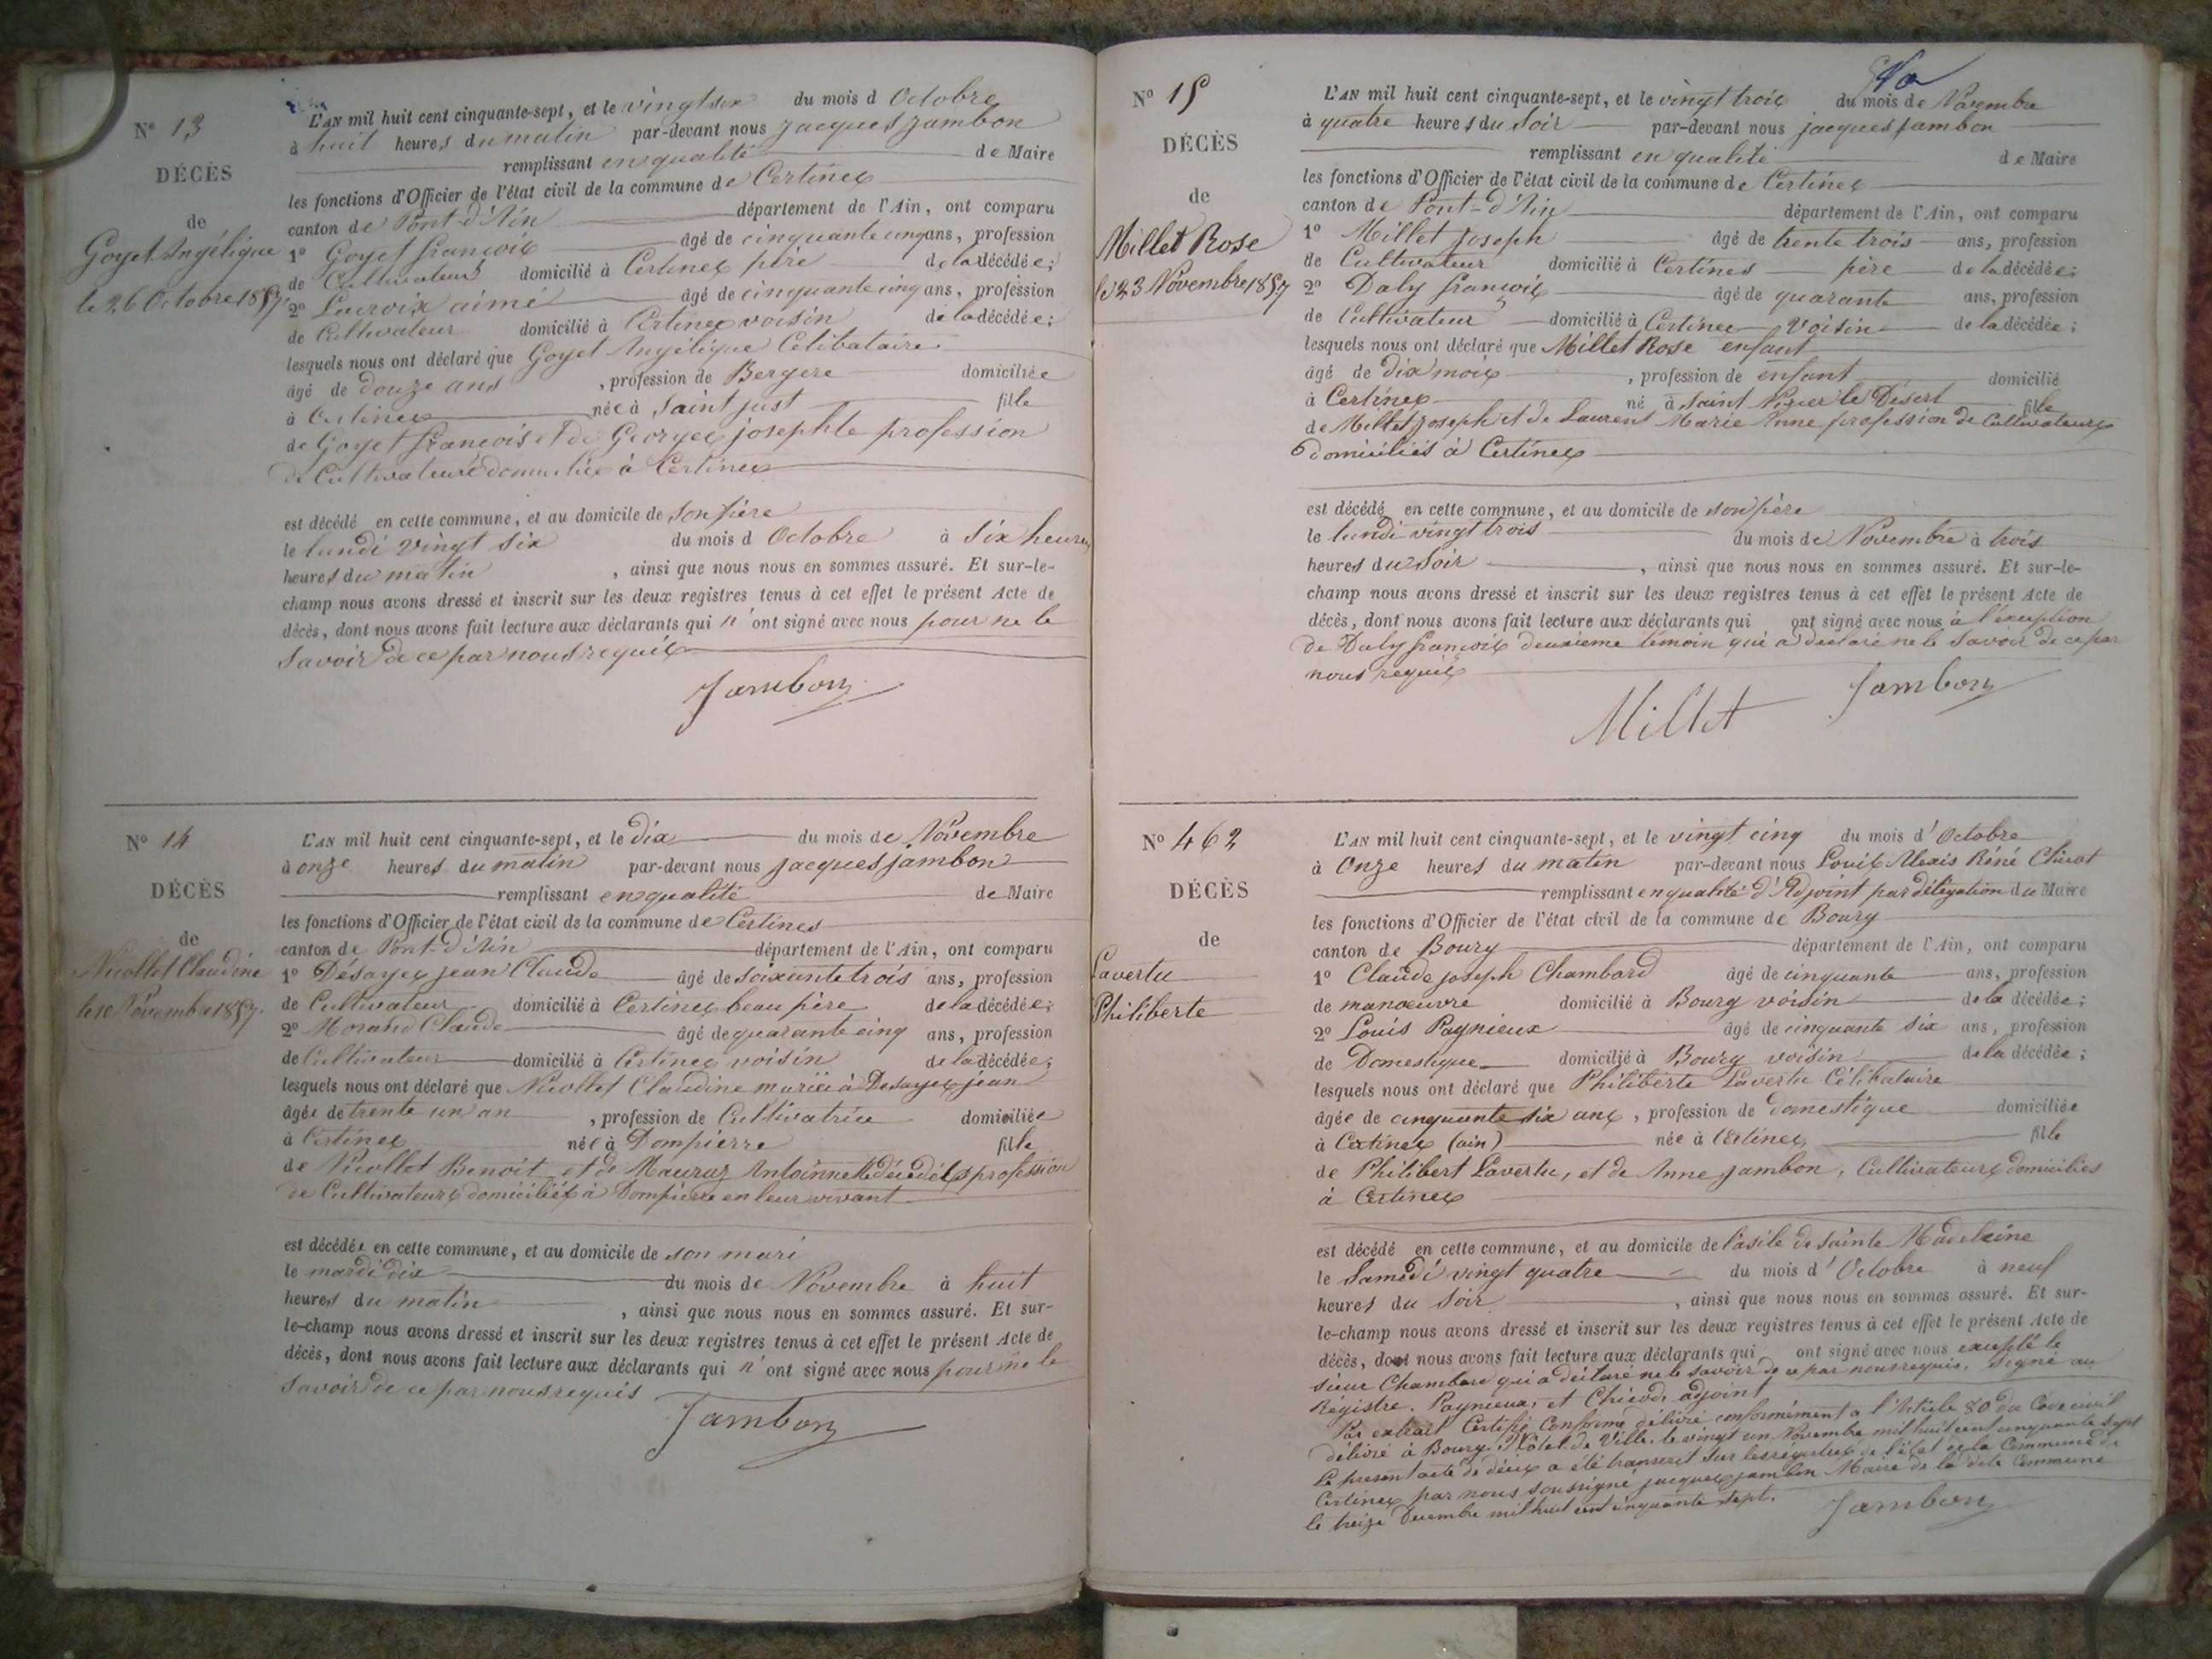 N° 13
DÉCÈS
de
Goyet Angélique
le 26 Octobre 1857
L'AN mil huit cent cinquante-sept, et le vingt six du mois d Octobre
à huit heures du matin par-devant nous jacques jambon
remplissant en qualité de Maire
les fonctions d'Officier de l'état civil de la commune de Certines
canton de Pont-d'Ain département de l'Ain, ont comparu
1° Goyet françois âgé de cinquante cinq ans, profession
de Cultivateur domicilié à Certines père de la décédée;
2° Lacroix aimé âgé de cinquante cinq ans, profession
de Cultivateur domicilié à Certines voisin de la décédée;
lesquels nous ont déclaré que Goyet Angélique Célibataire
âgé de douze ans , profession de Bergere domiciliée
à Certines née à Saint just fille
de Goyet françois et de Georges josephte profession
de Cultivateurs domiciliés à Certines
est décédé en cette commune, et au domicile de son père
le lundi vingt six du mois d Octobre à six heures
heures du matin , ainsi que nous nous en sommes assuré. Et sur-le-
champ nous avons dressé et inscrit sur les deux registres tenus à cet effet le présent Acte de
décès, dont nous avons fait lecture aux déclarants qui n'ont signé avec nous pour ne le
savoir de ce par nous requis
Jambon
N° 14
DÉCÈS
de
Nicollet Claudine
le 10 Novembre 1857.
L'AN mil huit cent cinquante-sept, et le dix du mois de Novembre
à onze heures du matin par-devant nous jacques jambon
remplissant en qualité de Maire
les fonctions d'Officier de l'état civil de la commune de Certines
canton de Pont-d'Ain département de l'Ain, ont comparu
1° Désayes jean Claude âgé de soixante trois ans, profession
de Cultivateur domicilié à Certines beau père de la décédée;
2° Morand Claude âgé de quarante cinq ans, profession
de Cultivateur domicilié à Certines voisin de la décédée;
lesquels nous ont déclaré que Nicollet Claudine mariée à Desayes jean
âgée de trente un an , profession de Cultivatrice domiciliée
à Certines née à Dompierre fille
de Nicollet Benoit et de Mauraz Antoinette décédés profession
de Cultivateurs domiciliés à Dompierre en leur vivant
est décédée en cette commune, et au domicile de son mari
le mardi dix du mois de Novembre à huit
heures du matin , ainsi que nous nous en sommes assuré. Et sur-
le-champ nous avons dressé et inscrit sur les deux registres tenus à cet effet le présent Acte de
décès, dont nous avons fait lecture aux déclarants qui n'ont signé avec nous pour ne le
savoir de ce par nous requis
Jambon
N° 15
DÉCÈS
de
Millet Rose
le 23 Novembre 1857
L'AN mil huit cent cinquante-sept, et le vingt trois du mois de Novembre
à quatre heures du Soir par-devant nous jacques jambon
remplissant en qualité de Maire
les fonctions d'Officier de l'état civil de la commune de Certines
canton de Pont-d'Ain département de l'Ain, ont comparu
1° Millet joseph âgé de trente trois ans, profession
de Cultivateur domicilié à Certines père de la décédée;
2° Daly françois âgé de quarante ans, profession
de Cultivateur domicilié à Certines Voisin de la décédée;
lesquels nous ont déclaré que Millet Rose enfant
âgé de dix mois , profession de enfant domicilié
à Certines né à saint Nizier le Désert fille
de Millet joseph et de Laurent Marie Anne profession de Cultivateurs
domiciliés à Certines
est décédé en cette commune, et au domicile de son père
le lundi vingt trois du mois de Novembre à trois
heures du Soir , ainsi que nous nous en sommes assuré. Et sur-le-
champ nous avons dressé et inscrit sur les deux registres tenus à cet effet le présent Acte de
décès, dont nous avons fait lecture aux déclarants qui ont signé avec nous à l'exception
de Daly françois deuxieme témoin qui a declaré ne le savoir de ce par
nous requis
Millet Jambon
N° 462
DÉCÈS
de
Lavertu
Philiberte
L'AN mil huit cent cinquante-sept, et le vingt cinq du mois d'Octobre
à Onze heures du matin par-devant nous Louis Alexis Réné Chicot
remplissant en qualité d'Adjoint par délégation du Maire
les fonctions d'Officier de l'état civil de la commune de Bourg
canton de Bourg département de l'Ain, ont comparu
1° Claude joseph Chambard âgé de cinquante ans, profession
de manœuvre domicilié à Bourg voisin de la décédée;
2° Louis Paynieux âgé de cinquante six ans, profession
de Domestique domicilié à Bourg voisin de la décédée;
lesquels nous ont déclaré que Philiberte Lavertu Célibataire
âgée de cinquante six ans , profession de domestique domiciliée
à Certines (ain) née à Certines, fille
de Philibert Lavertu, et de Anne jambon, Cultivateurs domiciliés
à Certines
est décédé en cette commune, et au domicile de l'asile de sainte Madeleine
le Samedi vingt quatre du mois d'Octobre à neuf
heures du Soir , ainsi que nous nous en sommes assuré. Et sur-
le-champ nous avons dressé et inscrit sur les deux registres tenus à cet effet le présent Acte de
décès, dont nous avons fait lecture aux déclarants qui ont signé avec nous excepté le
sieur Chambard qui a déclaré ne le savoir de ce par nous requis. Signé au
Régistre. Paynieux, et Chicod, adjoint
Par extrait Certifié Conforme délivré conformément à l'Article 80 du Code civil
délivré à Bourg, Hôtel de Ville, le vingt un Novembre mil huit cent cinquante sept
Le présent acte de décès a été transcrit sur les régistres de l'état de la Commune de
Certines par nous soussigné jacques jambon Maire de la dite Commune
le treize Decembre mil huit cent cinquante sept.
Jambon